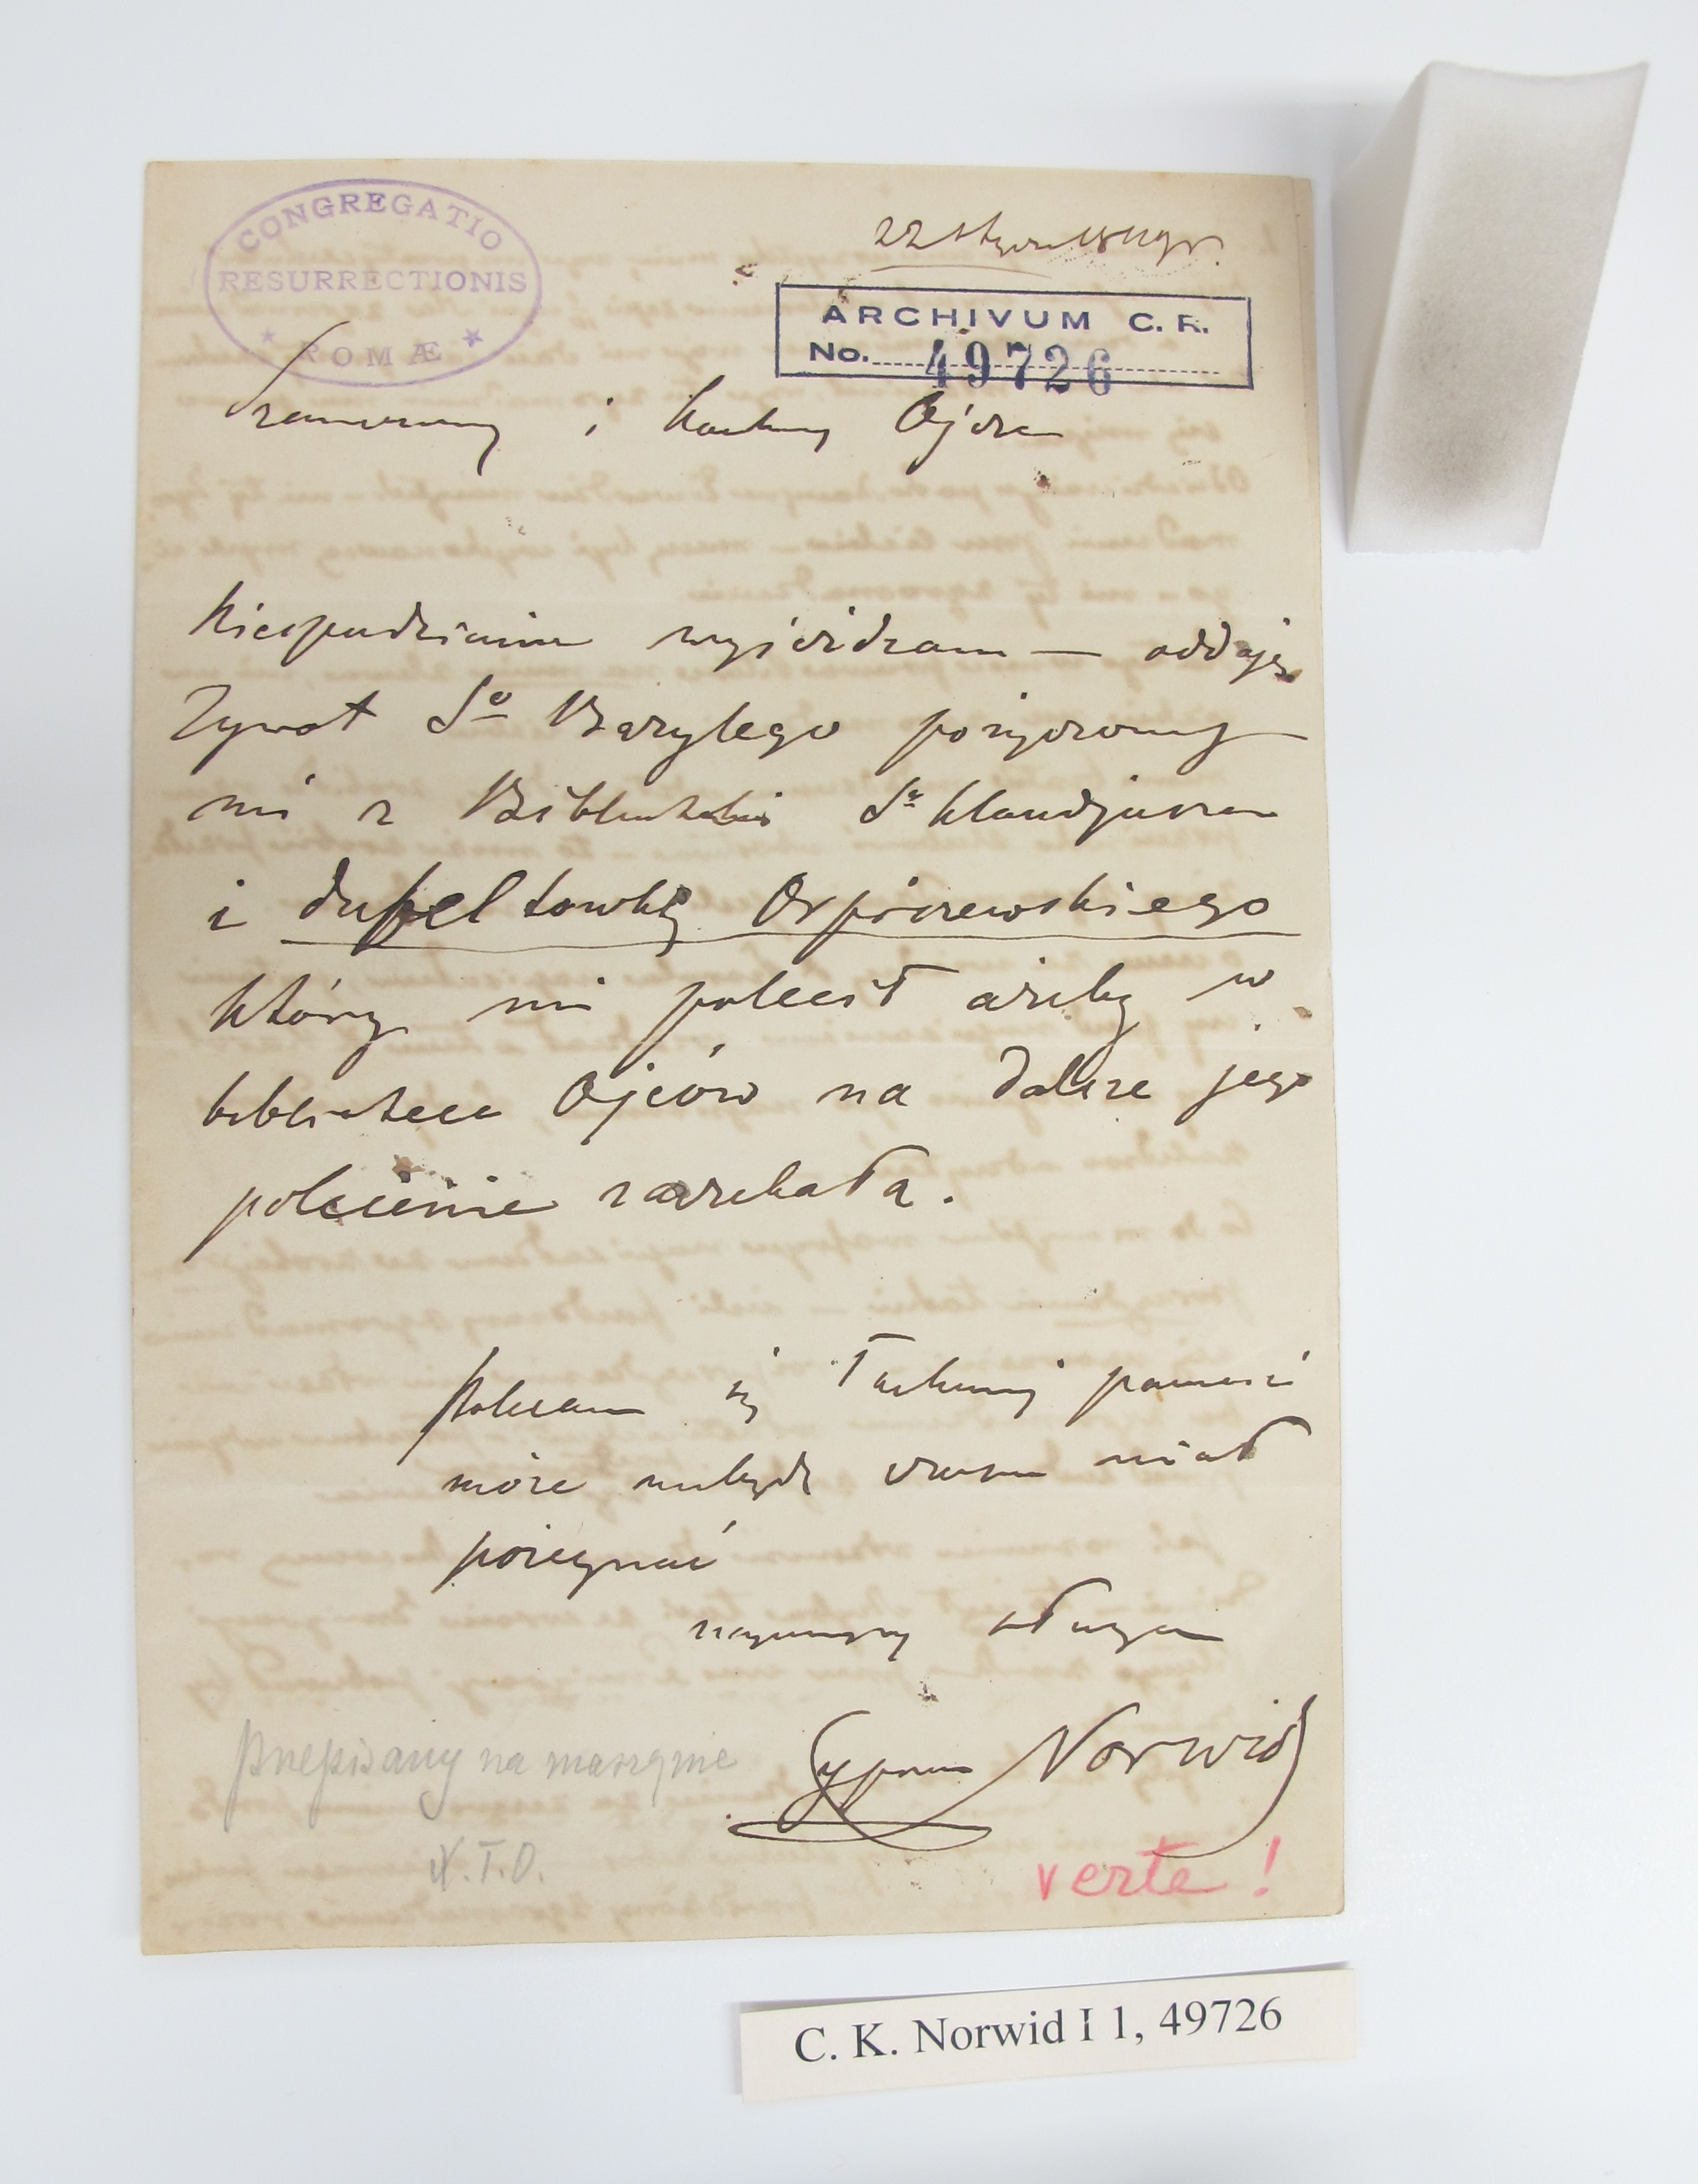 CONGREGATIO
RESURRECTIONIS
ROMÆ
22
ARCHIVUM C. R.
No. 49726
Szanowny i kochany Ojcze
Niespodzianie wyjeżdżam — oddaję
Żywot Sº Bazylego pożyczony
mi z Biblioteki Sº Klaudjusza
i dubeltówkę Orpiszewskiego
który mi polecił ażeby w
bibliotece Ojców na dalsze jego
polecenie zaczekała.
Polecam się łaskawej pamięci
może niebędę czasu miał
pożegnać
sługa
Cyprian Norwid
przepisany na maszynie
X.T.O.
verte!
C. K. Norwid I 1, 49726